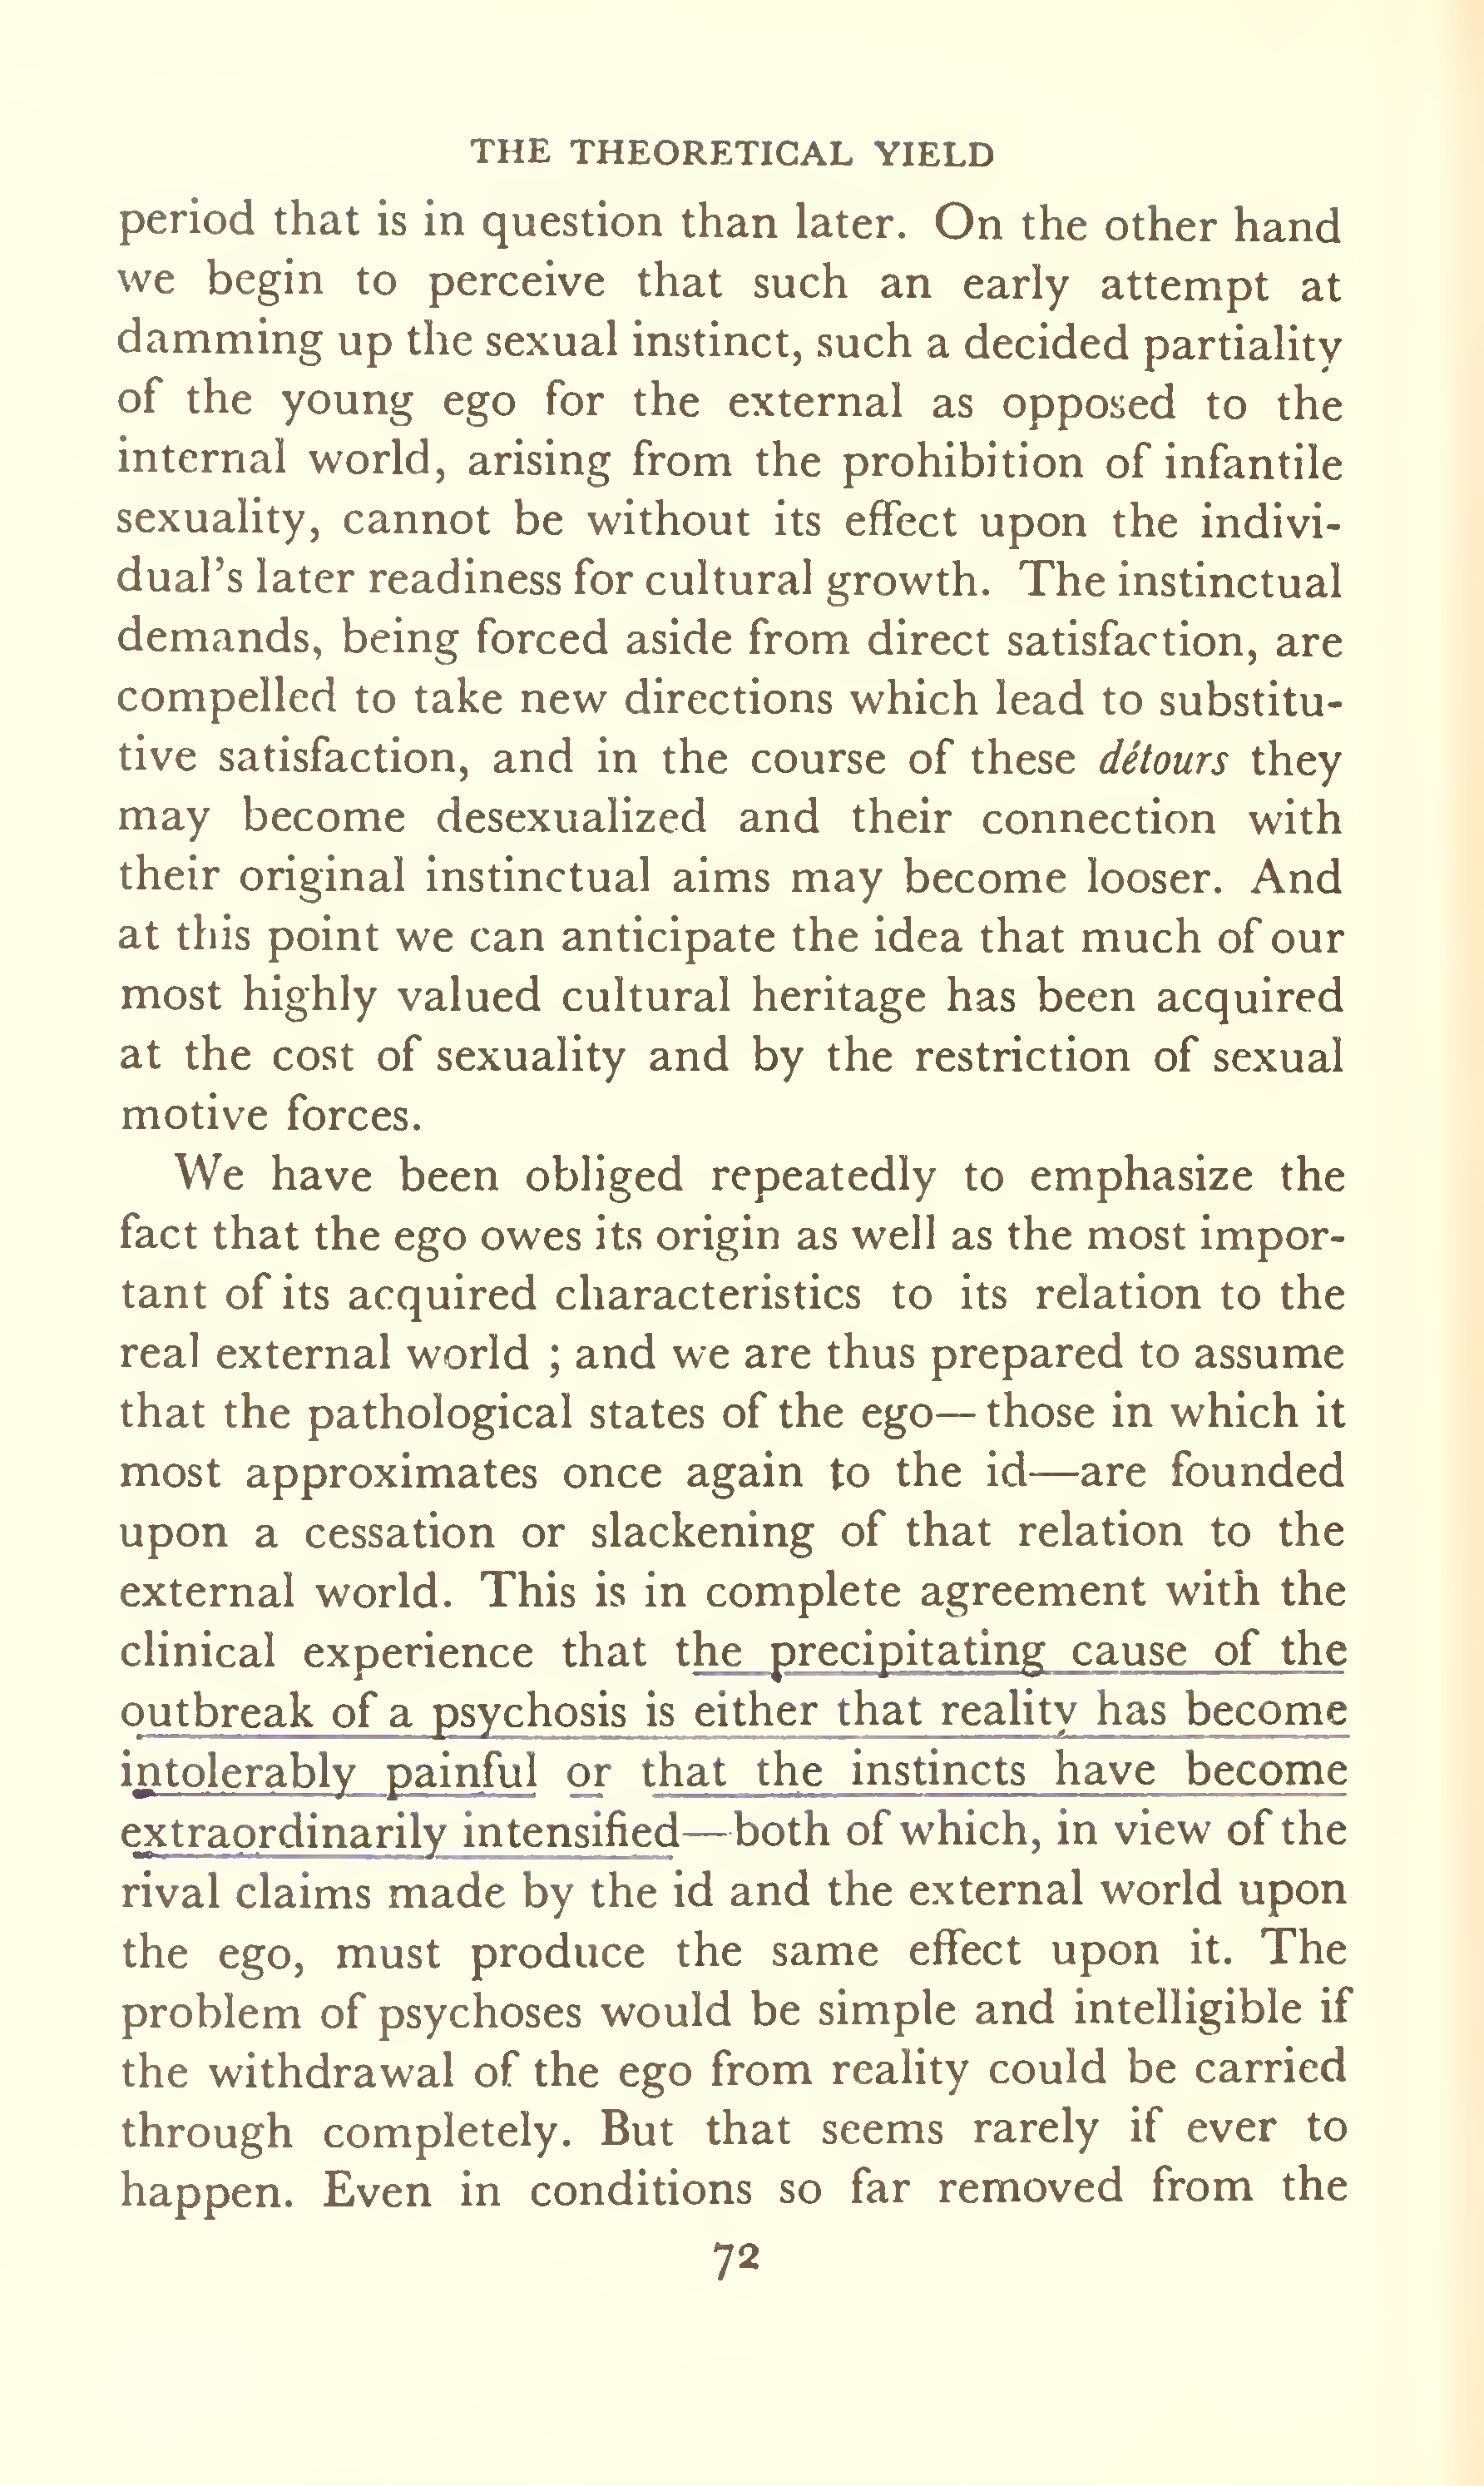 THE THEORETICAL YIELD
period that is in question than later. On the other hand
we begin to perceive that such an early attempt at
damming up the sexual instinct, such a decided partiality
of the young ego for the external as opposed to the
internal world, arising from the prohibition of infantile
sexuality, cannot be without its effect upon the indivi-
dual's later readiness for cultural growth. The instinctual
demands, being forced aside from direct satisfaction, are
compelled to take new directions which lead to substitu-
tive satisfaction, and in the course of these détours they
may become desexualized and their connection with
their original instinctual aims may become looser. And
at this point we can anticipate the idea that much of our
most highly valued cultural heritage has been acquired
at the cost of sexuality and by the restriction of sexual
motive forces.
We have been obliged repeatedly to emphasize the
fact that the ego owes its origin as well as the most impor-
tant of its acquired characteristics to its relation to the
real external world ; and we are thus prepared to assume
that the pathological states of the ego—those in which it
most approximates once again to the id—are founded
upon a cessation or slackening of that relation to the
external world. This is in complete agreement with the
clinical experience that the precipitating cause of the
outbreak of a psychosis is either that reality has become
intolerably painful or that the instincts have become
extraordinarily intensified—both of which, in view of the
rival claims made by the id and the external world upon
the ego, must produce the same effect upon it. The
problem of psychoses would be simple and intelligible if
the withdrawal of the ego from reality could be carried
through completely. But that seems rarely if ever to
happen. Even in conditions so far removed from the
72